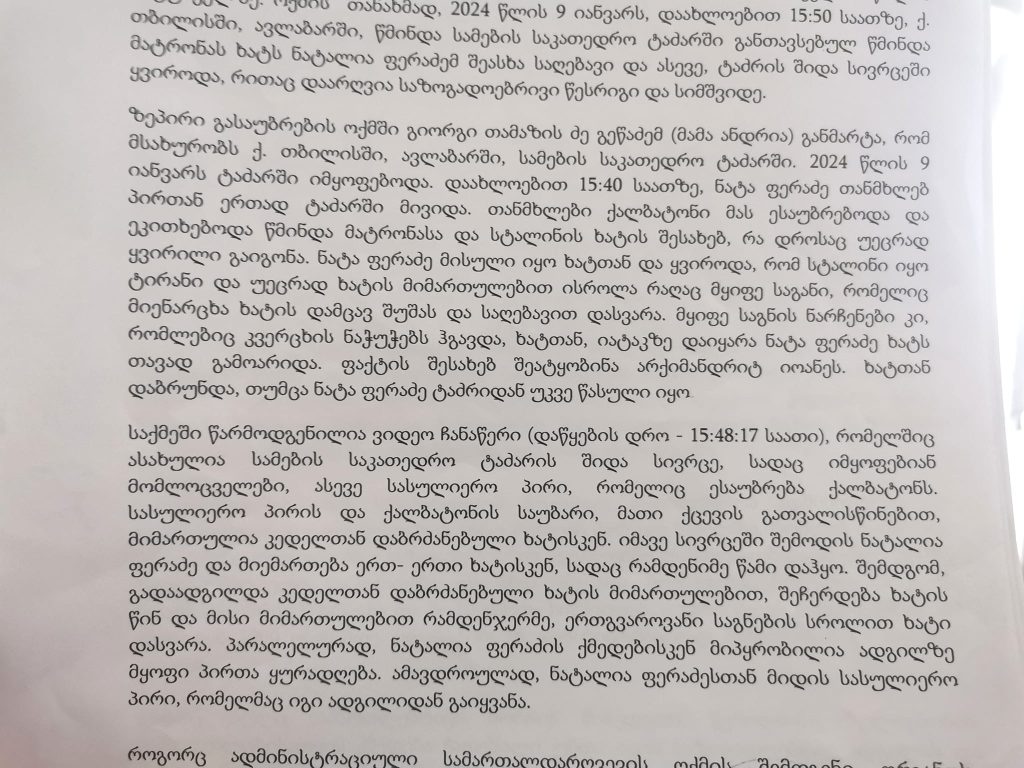 თანახმად, 2024 წლის 9 იანვარს, დაახლოებით 15:50 საათზე, ქ.
თბილისში, ავლაბარში, წმინდა სამების საკათედრო ტაძარში განთავსებულ წმინდა
მატრონას ხატს ნატალია ფერაძემ შეასხა საღებავი და ასევე, ტაძრის შიდა სივრცეში
ყვიროდა, რითაც დაარღვია საზოგადოებრივი წესრიგი და სიმშვიდე.
ზეპირი გასაუბრების ოქმში გიორგი თამაზის ძე გეწაძემ (მამა ანდრია) განმარტა, რომ
მსახურობს ქ. თბილისში, ავლაბარში, სამების საკათედრო ტაძარში. 2024 წლის 9
იანვარს ტაძარში იმყოფებოდა. დაახლოებით 15:40 საათზე, ნატა ფერაძე თანმხლებ
პირთან ერთად ტაძარში მივიდა. თანმხლები ქალბატონი მას ესაუბრებოდა და
ეკითხებოდა წმინდა მატრონასა და სტალინის ხატის შესახებ, რა დროსაც უეცრად
ყვირილი გაიგონა. ნატა ფერაძე მისული იყო ხატთან და ყვიროდა, რომ სტალინი იყო
ტირანი და უეცრად ხატის მიმართულებით ისროლა რაღაც მყიფე საგანი, რომელიც
მიენარცხა ხატის დამცავ შუშას და საღებავით დასვარა. მყიფე საგნის ნარჩენები კი,
რომლებიც კვერცხის ნაჭუჭებს ჰგავდა, ხატთან, იატაკზე დაიყარა ნატა ფერაძე ხატს
თავად გამოარიდა. ფაქტის შესახებ შეატყობინა არქიმანდრიტ იოანეს. ხატთან
დაბრუნდა, თუმცა ნატა ფერაძე ტაძრიდან უკვე წასული იყო
საქმეში წარმოდგენილია ვიდეო ჩანაწერი (დაწყების დრო - 15:48:17 საათი), რომელშიც
ასახულია სამების საკათედრო ტაძარის შიდა სივრცე, სადაც იმყოფებიან
მომლოცველები, ასევე სასულიერო პირი, რომელიც ესაუბრება ქალბატონს.
სასულიერო პირის და ქალბატონის საუბარი, მათი ქცევის გათვალისწინებით,
მიმართულია კედელთან დაბრძანებული ხატისკენ. იმავე სივრცეში შემოდის ნატალია
ფერაძე და მიემართება ერთ- ერთი ხატისკენ, სადაც რამდენიმე წამი დაჰყო. შემდგომ,
გადაადგილდა კედელთან დაბრძანებული ხატის მიმართულებით, შეჩერდება ხატის
წინ და მისი მიმართულებით რამდენჯერმე, ერთგვაროვანი საგნების სროლით ხატი
დასვარა. პარალელურად, ნატალია ფერაძის ქმედებისკენ მიპყრობილია ადგილზე
მყოფი პირთა ყურადღება. ამავდროულად, ნატალია ფერაძესთან მიდის სასულიერო
პირი, რომელმაც იგი ადგილიდან გაიყვანა.
როგორც ადმინისტრაციული სამართალდარღვევის ოქმის შემდგენი